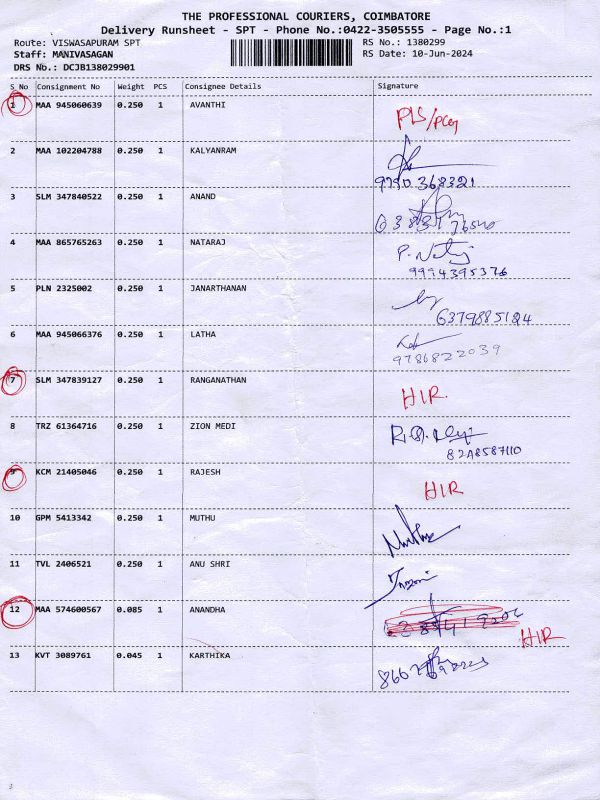 THE PROFESSIONAL COURIERS, COIMBATORE
Delivery Runsheet - SPT - Phone No.:0422-3505555 - Page No.:1
Route: VISWASAPURAM SPT RS No.: 1380299
Staff: MANIVASAGAN RS Date: 10-Jun-2024
DRS No.: DCJB138029901
S No Consignment No Weight PCS Consignee Details Signature
1 MAA 945060639 0.250 1 AVANTHI
2 MAA 102204788 0.250 1 KALYANRAM
9790368321
3 SLM 347840522 0.250 1 ANAND
4 MAA 865765263 0.250 1 NATARAJ
9994395376
5 PLN 2325002 0.250 1 JANARTHANAN
6379885124
6 MAA 945066376 0.250 1 LATHA
9786822039
7 SLM 347839127 0.250 1 RANGANATHAN
HIR
8 TRZ 61364716 0.250 1 ZION MEDI
8248587110
9 KCM 21405046 0.250 1 RAJESH
HIR
10 GPM 5413342 0.250 1 MUTHU
11 TVL 2406521 0.250 1 ANU SHRI
12 MAA 574600567 0.085 1 ANANDHA
HIR
13 KVT 3089761 0.045 1 KARTHIKA
3